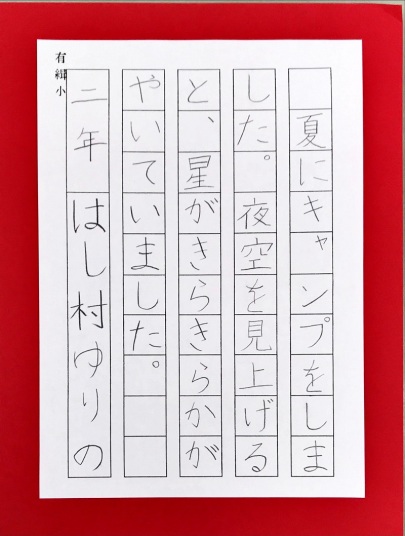 夏にキャンプをしま
した。夜空を見上げる
と、星がきらきらかが
やいていました。
有緝小
二年 はし村ゆりの